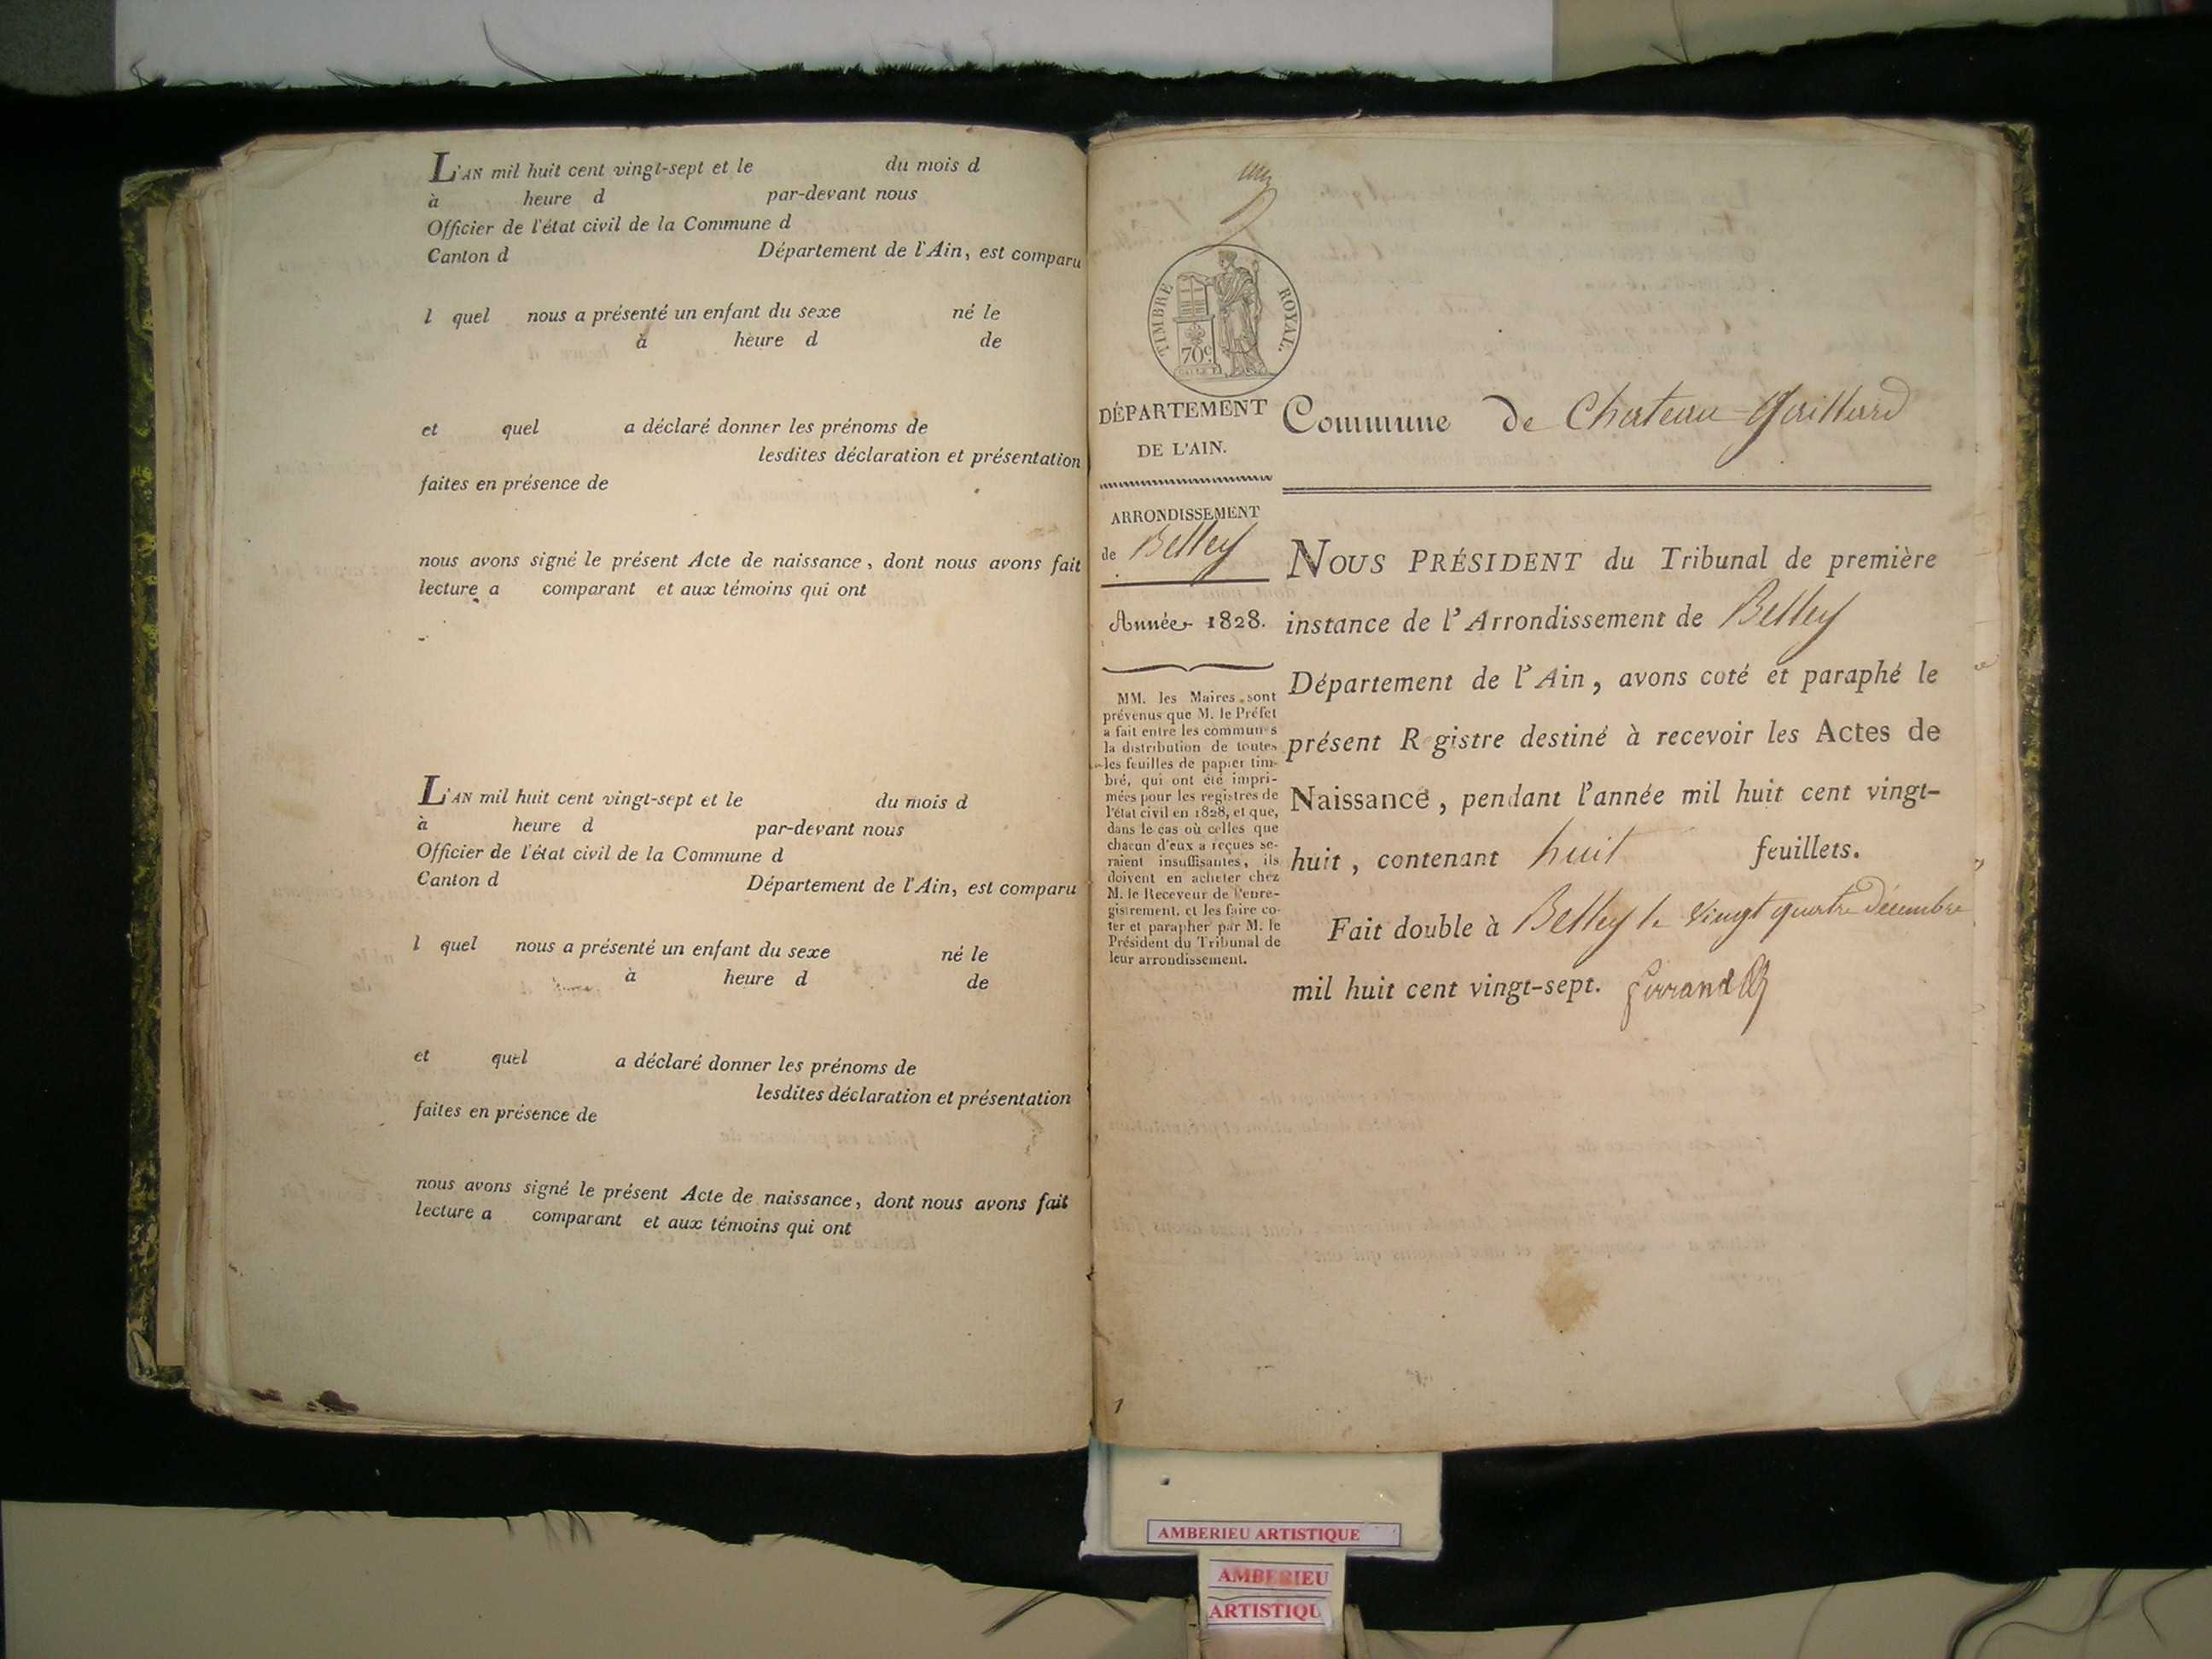 L'AN mil huit cent vingt-sept et le du mois d
à heure d par-devant nous
Officier de l'état civil de la Commune d
Canton d Département de l'Ain, est comparu
l quel nous a présenté un enfant du sexe né le
à heure d de
et quel a déclaré donner les prénoms de
lesdites déclaration et présentation
faites en présence de
nous avons signé le présent Acte de naissance, dont nous avons fait
lecture a comparant et aux témoins qui ont
L'AN mil huit cent vingt-sept et le du mois d
à heure d par-devant nous
Officier de l'état civil de la Commune d
Canton d Département de l'Ain, est comparu
l quel nous a présenté un enfant du sexe né le
à heure d de
et quel a déclaré donner les prénoms de
lesdites déclaration et présentation
faites en présence de
nous avons signé le présent Acte de naissance, dont nous avons fait
lecture a comparant et aux témoins qui ont
TIMBRE ROYAL.
70c
DÉPARTEMENT
DE L'AIN.
ARRONDISSEMENT
de Belley
Année 1828.
MM. les Maires sont
prévenus que M. le Préfet
a fait entre les communes
la distribution de toutes
les feuilles de papier tim-
bré, qui ont été impri-
mées pour les registres de
l'état civil en 1828, et que,
dans le cas où celles que
chacun d'eux a reçues se-
raient insuffisantes, ils
doivent en acheter chez
M. le Receveur de l'enre-
gistrement, et les faire co-
ter et parapher par M. le
Président du Tribunal de
leur arrondissement.
Commune de Chateau-Gaillard
NOUS PRÉSIDENT du Tribunal de première
instance de l'Arrondissement de Belley
Département de l'Ain, avons coté et paraphé le
présent R gistre destiné à recevoir les Actes de
Naissance, pendant l'année mil huit cent vingt-
huit, contenant huit feuillets.
Fait double à Belley le vingt quatre décembre
mil huit cent vingt-sept.
1
AMBERIEU ARTISTIQUE
AMBERIEU
ARTISTIQU